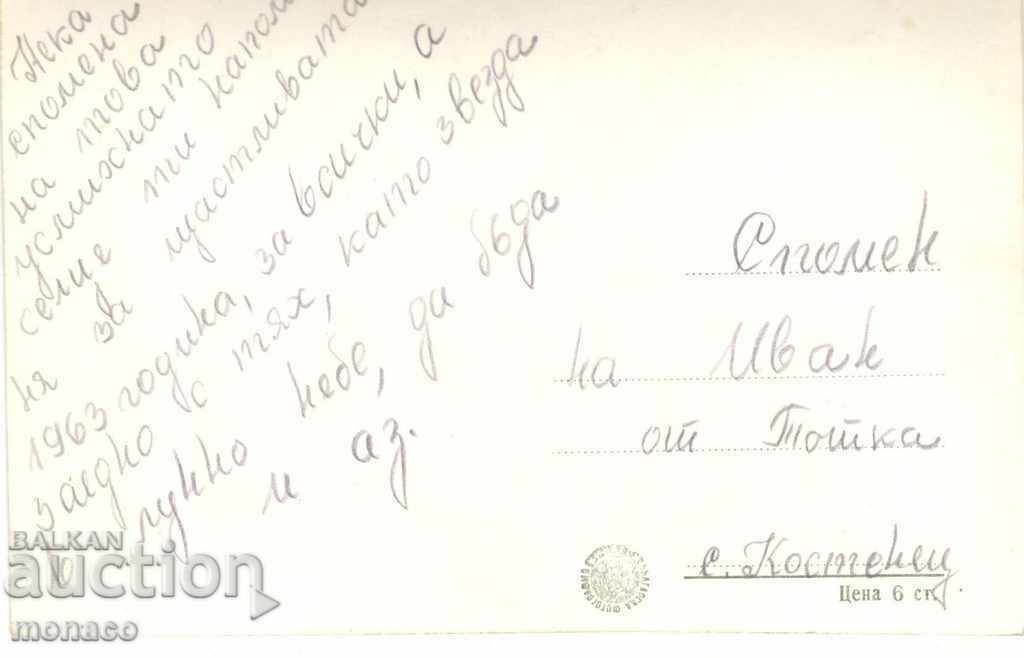 Нека
спомена
на това
усмихнато
селце ти напом
ня за щастливата
1963 година, за всички, а
заедно с тях, като звезда
в лунно небе, да бъда
и аз.
Спомен
на Иван
от Тотка
с. Костенец
Цена 6 ст.
BALKAN
auction
monaco